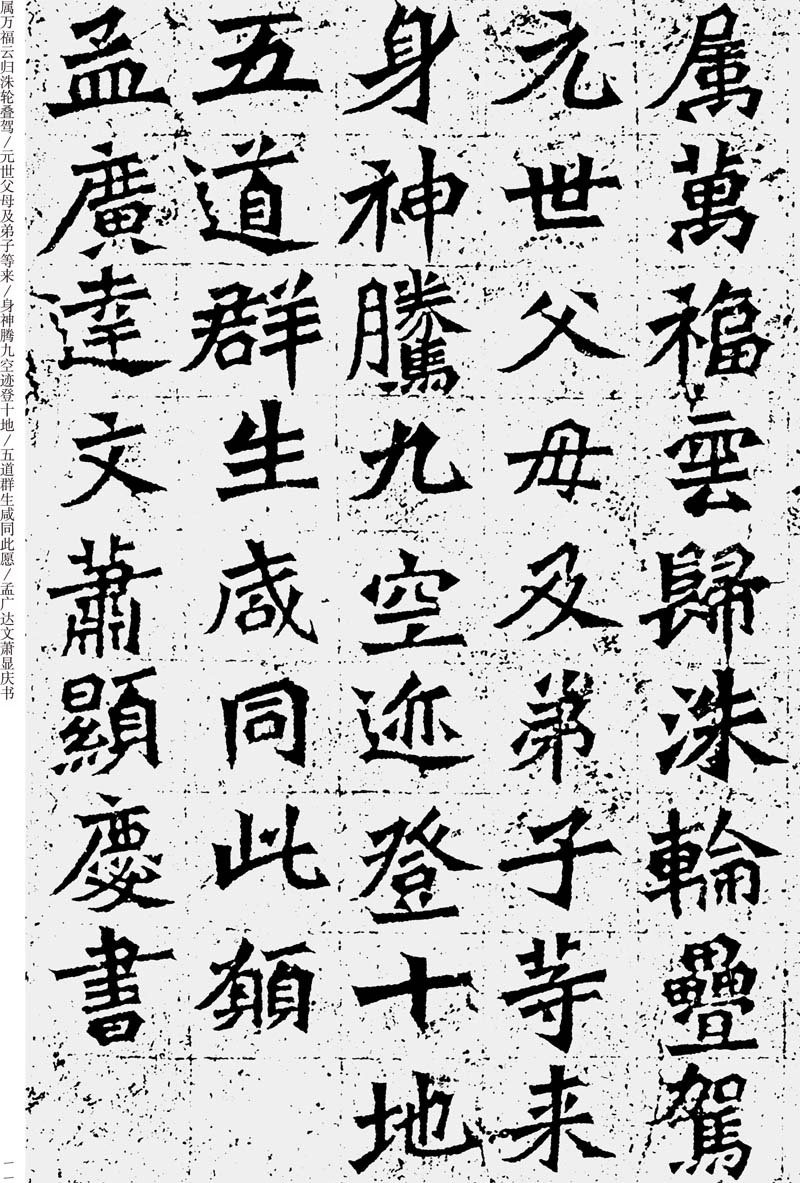 属萬福雲歸洙輪疊駕
元世父母及弟子等来
身神騰九空迹登十地
五道群生咸同此願
孟廣達文蕭顯慶書
属万福云归洙轮叠驾/元世父母及弟子等来/身神腾九空迹登十地/五道群生咸同此愿/孟广达文萧显庆书
一一